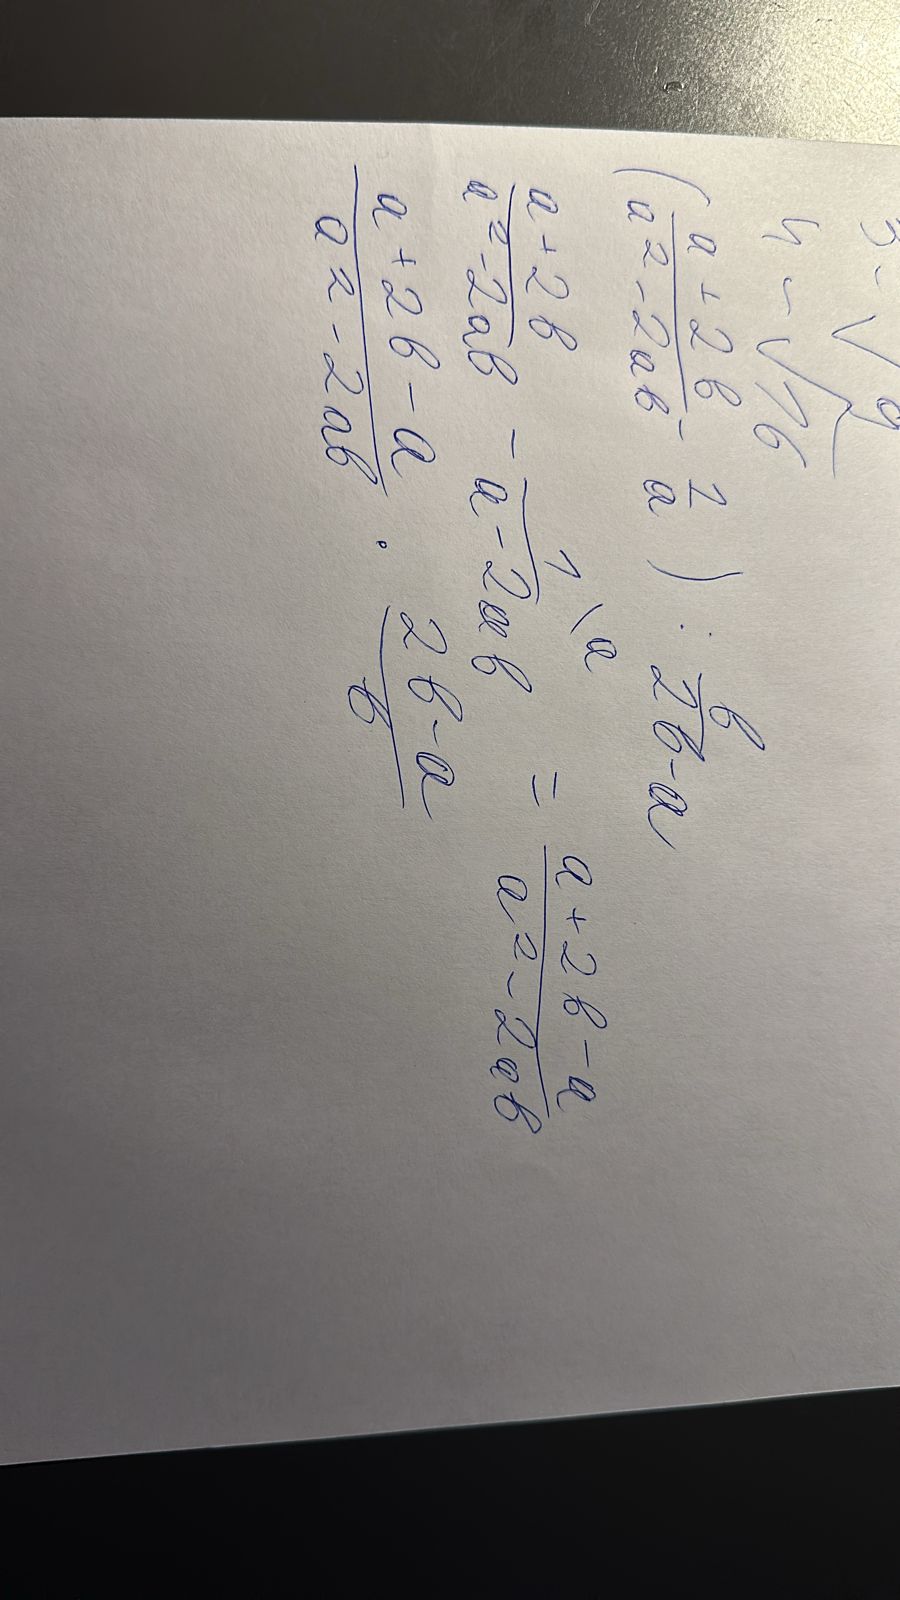 3 - √9
4 - √16
(a + 2b / a² - 2ab - 1 / a) : b / 2b - a
a + 2b / a² - 2ab - 1 \a / a - 2ab = a + 2b - a / a² - 2ab
a + 2b - a / a² - 2ab · 2b - a / b